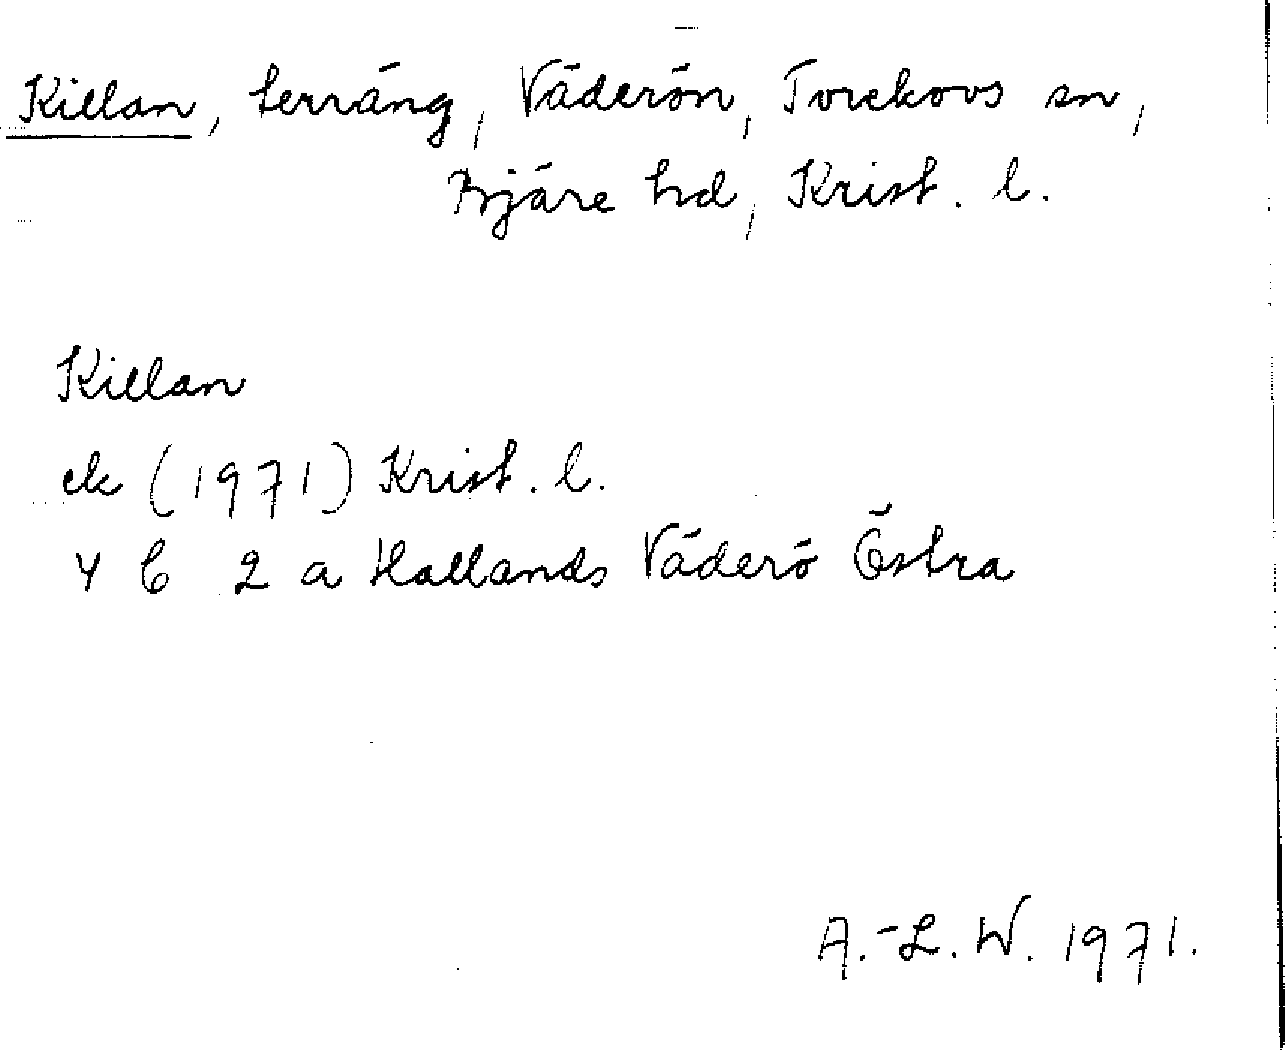 Killan, terräng, Väderön, Torekovs sn,
Bjäre hd, Krist. l.
Killan
ek (1971) Krist. l.
4 C 2 a Hallands Väderö Östra
A.-L. W. 1971.